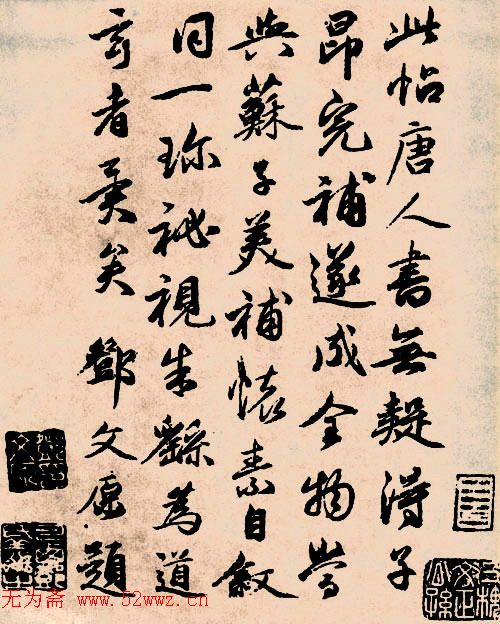 此帖唐人書無疑得子
昂完補遂成全物當
與蘇子美補懷素自敘
同一珎祕視朱繇為道
玄者異矣 鄧文原題
无为斋 www.52wwz.cn